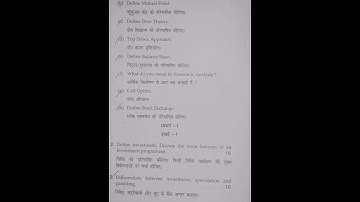 (b) Define Mutual Fund.
म्यूचुअल फंड को परिभाषित कीजिए।
(c) Define Dow Theory.
डॉव सिद्धान्त को परिभाषित कीजिए।
(d) Top Down Approach.
टॉप डाउन दृष्टिकोण।
(e) Define Balance Sheet.
चिट्ठा/तुलनपत्र को परिभाषित कीजिए।
(f) What do you mean by Economic Analysis ?
आर्थिक विश्लेषण से आप क्या समझते हैं ?
(g) Call Option.
कॉल ऑप्शन।
(h) Define Stock Exchange.
स्टॉक एक्सचेंज को परिभाषित कीजिए।
UNIT – I
इकाई – I
2. Define investment. Discuss the main features of an
investment programme. 16
निवेश को परिभाषित कीजिए। किसी निवेश कार्यक्रम की मुख्य
विशेषताओं पर चर्चा कीजिए।
3. Differentiate between investment, speculation and
gambling. 16
निवेश, सट्टेबाजी और जुए के बीच अन्तर बताइए।